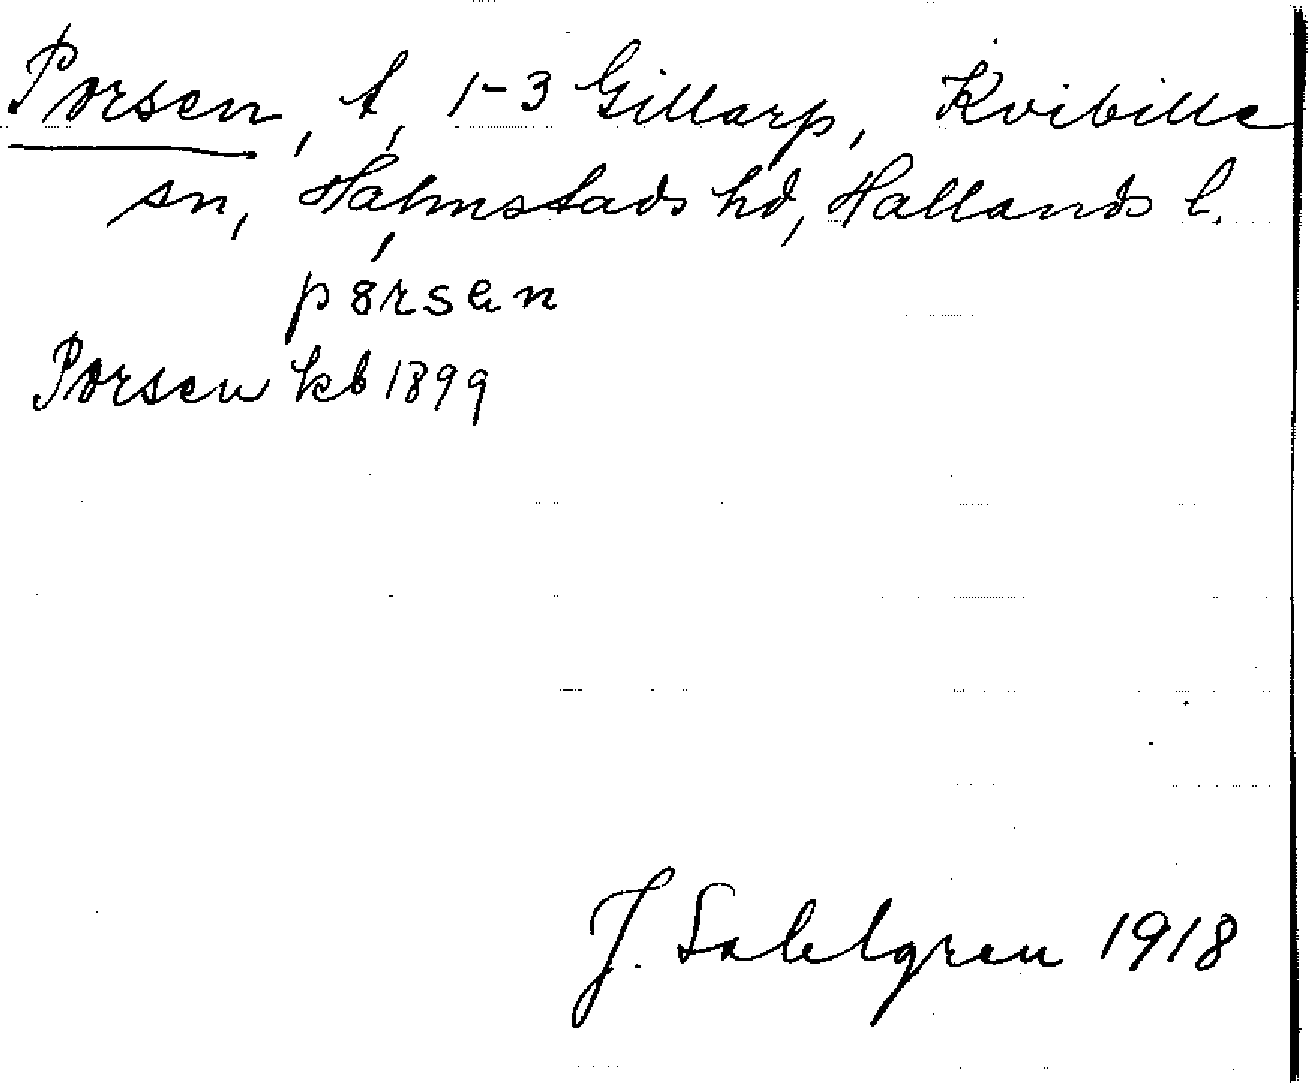 Porsen, t, 1-3 Gillarp, Kvibille
sn, Halmstads hd, Hallands l.
pørsen
Porsen kb 1899
J. Sahlgren 1918